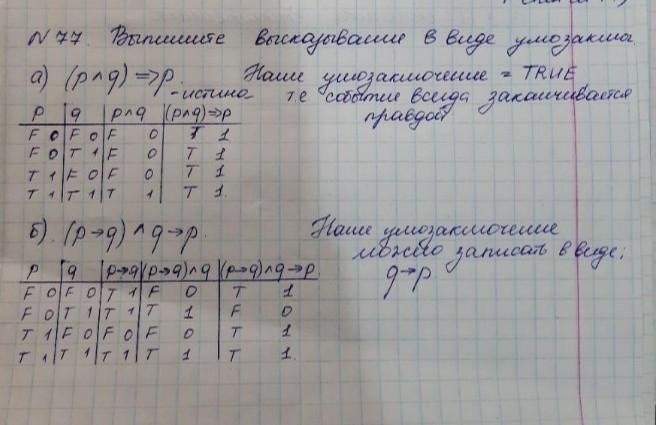 N 77. Выпишите высказывание в виде умозакл
а) (p∧q)⇒p. Наше умозаключение = TRUE
-истина т.е событие всегда заканчивается
правдой
p q p∧q (p∧q)⇒p
F 0 F 0 F 0 T 1
F 0 T 1 F 0 T 1
T 1 F 0 F 0 T 1
T 1 T 1 T 1 T 1.
б). (p→q)∧q→p. Наше умозаключение
можно записать в виде;
q→p
p q p→q (p→q)∧q (p→q)∧q→p
F 0 F 0 T 1 F 0 T 1
F 0 T 1 T 1 T 1 F 0
T 1 F 0 F 0 F 0 T 1
T 1 T 1 T 1 T 1 T 1.